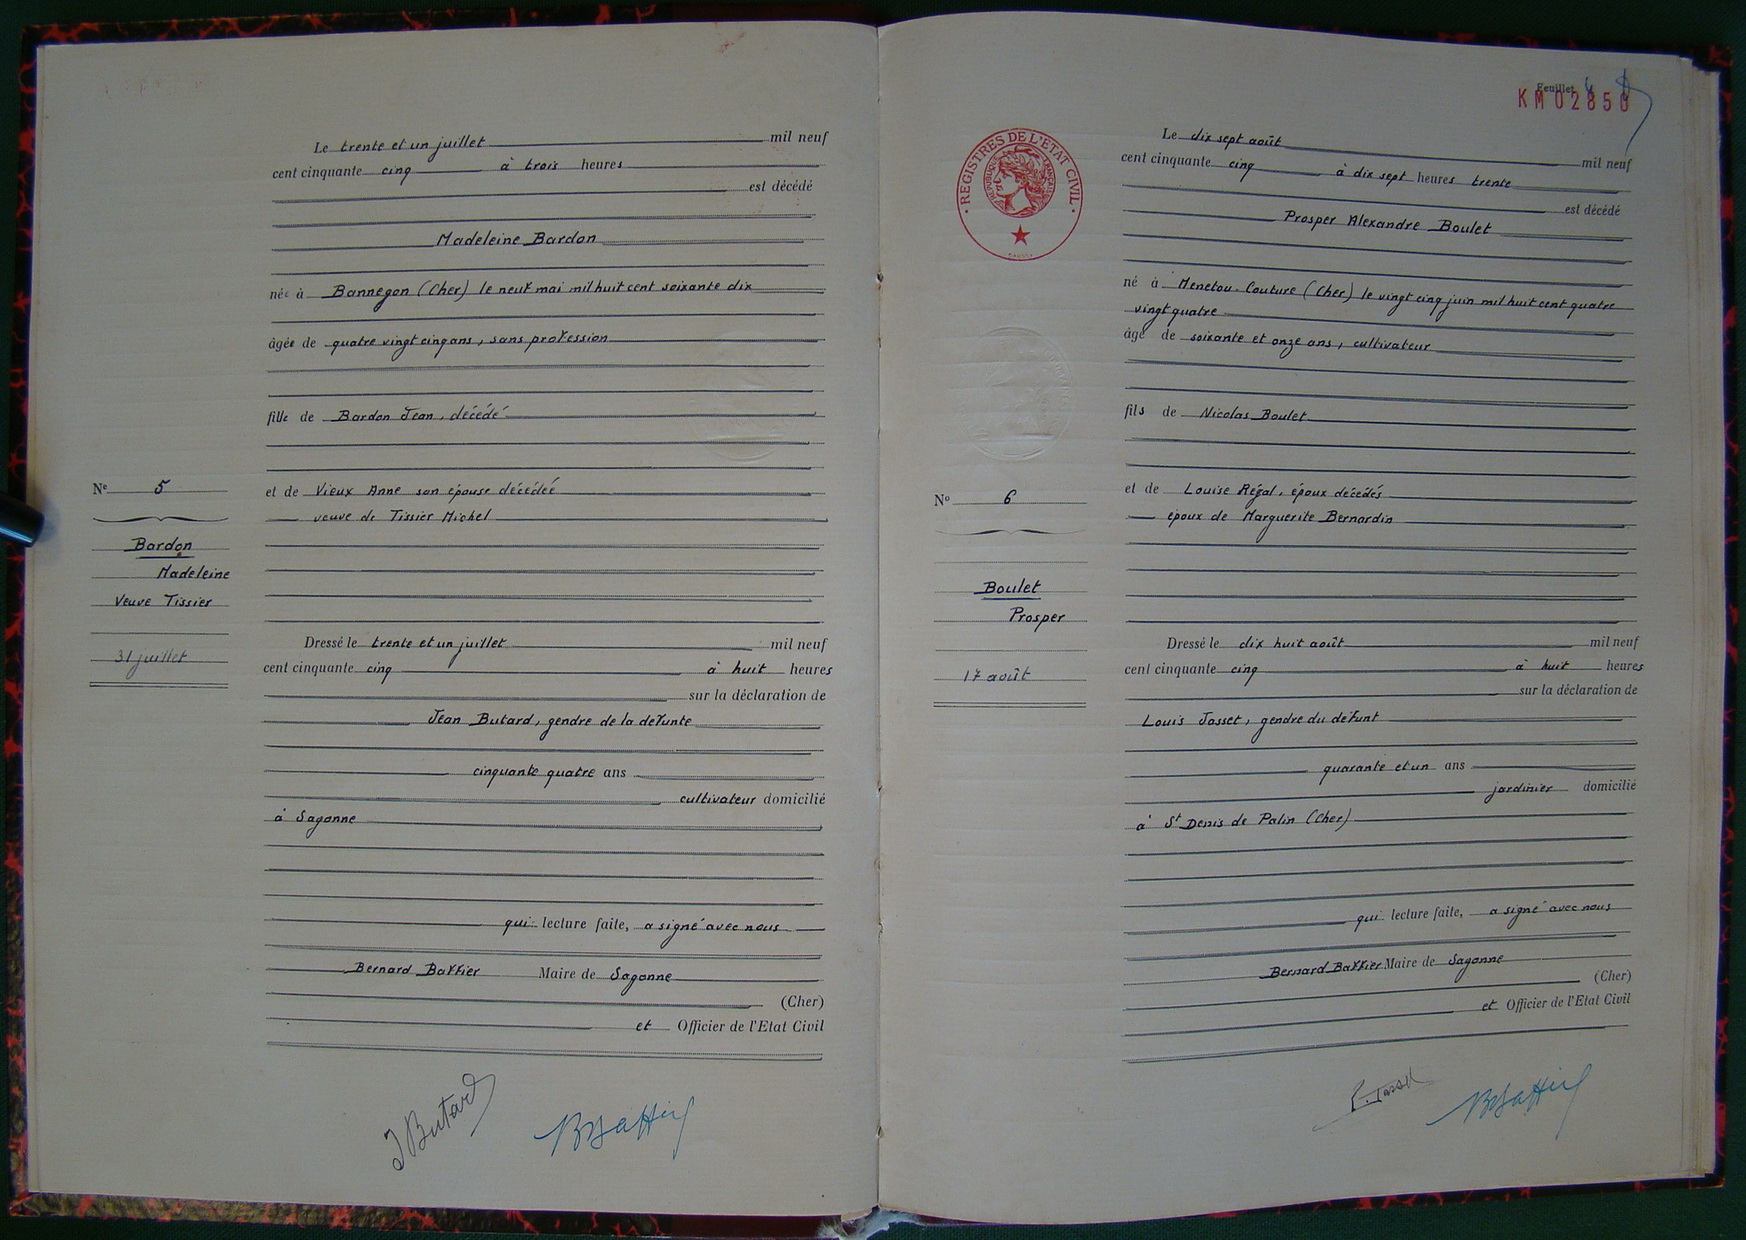 Le trente et un juillet mil neuf
cent cinquante cinq à trois heures
est décédé
Madeleine Bardon
née à Bannegon (Cher) le neuf mai mil huit cent soixante dix
âgée de quatre vingt cinq ans, sans profession
fille de Bardon Jean, décédé
et de Vieux Anne son épouse décédée
veuve de Tissier Michel
N° 5
Bardon
Madeleine
Veuve Tissier
31 juillet
Dressé le trente et un juillet mil neuf
cent cinquante cinq à huit heures
sur la déclaration de
Jean Butard, gendre de la défunte
cinquante quatre ans
cultivateur domicilié
à Sagonne
qui lecture faite, a signé avec nous
Bernard Baffier Maire de Sagonne
(Cher)
et Officier de l'Etat Civil
J Butard
BBaffier
Feuillet
KM02850
REGISTRES DE L'ETAT CIVIL
REPUBLIQUE FRANÇAISE
Le dix sept août mil neuf
cent cinquante cinq à dix sept heures trente
est décédé
Prosper Alexandre Boulet
né à Menetou-Couture (Cher) le vingt cinq juin mil huit cent quatre
vingt quatre
âgé de soixante et onze ans, cultivateur
fils de Nicolas Boulet
et de Louise Régal, époux décédés
époux de Marguerite Bernardin
N° 6
Boulet
Prosper
17 août
Dressé le dix huit août mil neuf
cent cinquante cinq à huit heures
sur la déclaration de
Louis Josset, gendre du défunt
quarante et un ans
jardinier domicilié
à St Denis de Palin (Cher)
qui lecture faite, a signé avec nous
Bernard Baffier Maire de Sagonne
(Cher)
et Officier de l'Etat Civil
BBaffier